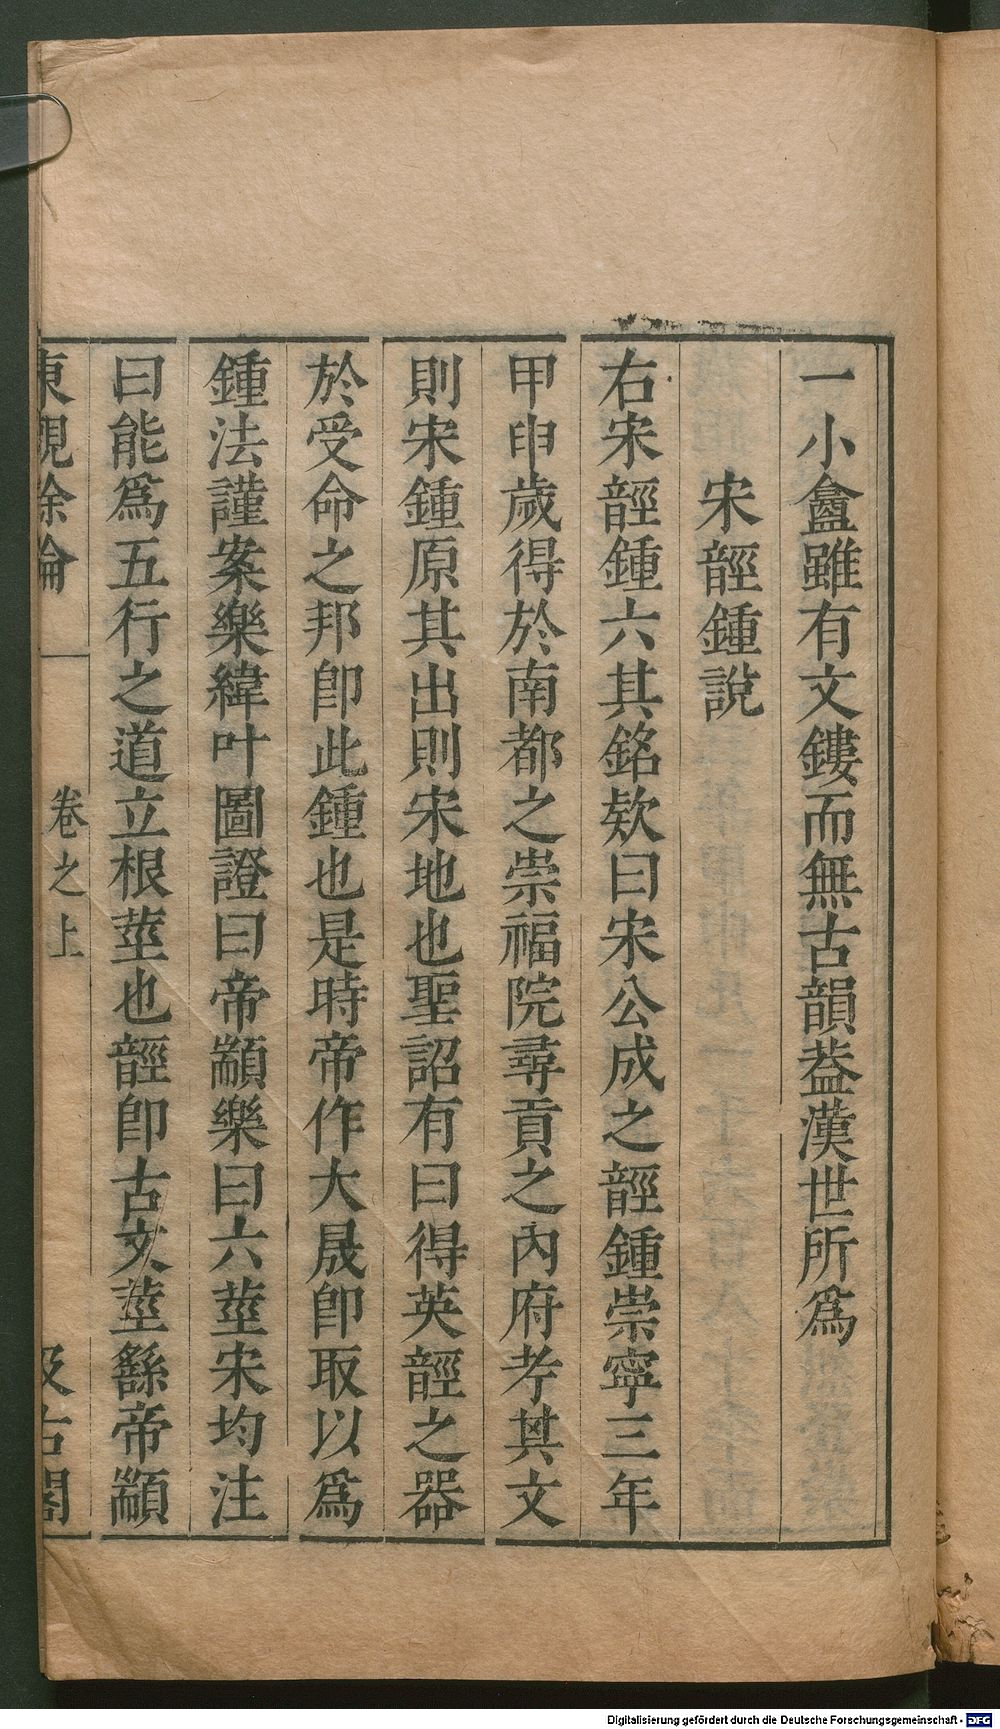 一小奩雖有文鏤而無古韻葢漢世所爲
宋䪫鍾說
右宋䪫鍾六其銘欵曰宋公成之䪫鍾崇寧三年
甲申歲得於南都之崇福院尋貢之內府考其文
則宋鍾原其出則宋地也聖詔有曰得英䪫之器
於受命之邦卽此鍾也是時帝作大晟卽取以爲
鍾法謹案樂緯叶圖證曰帝顓樂曰六莖宋均注
曰能爲五行之道立根莖也䪫卽古文莖繇帝顓
東觀餘論
卷之上
汲古閣
Digitalisierung gefördert durch die Deutsche Forschungsgemeinschaft - DFG